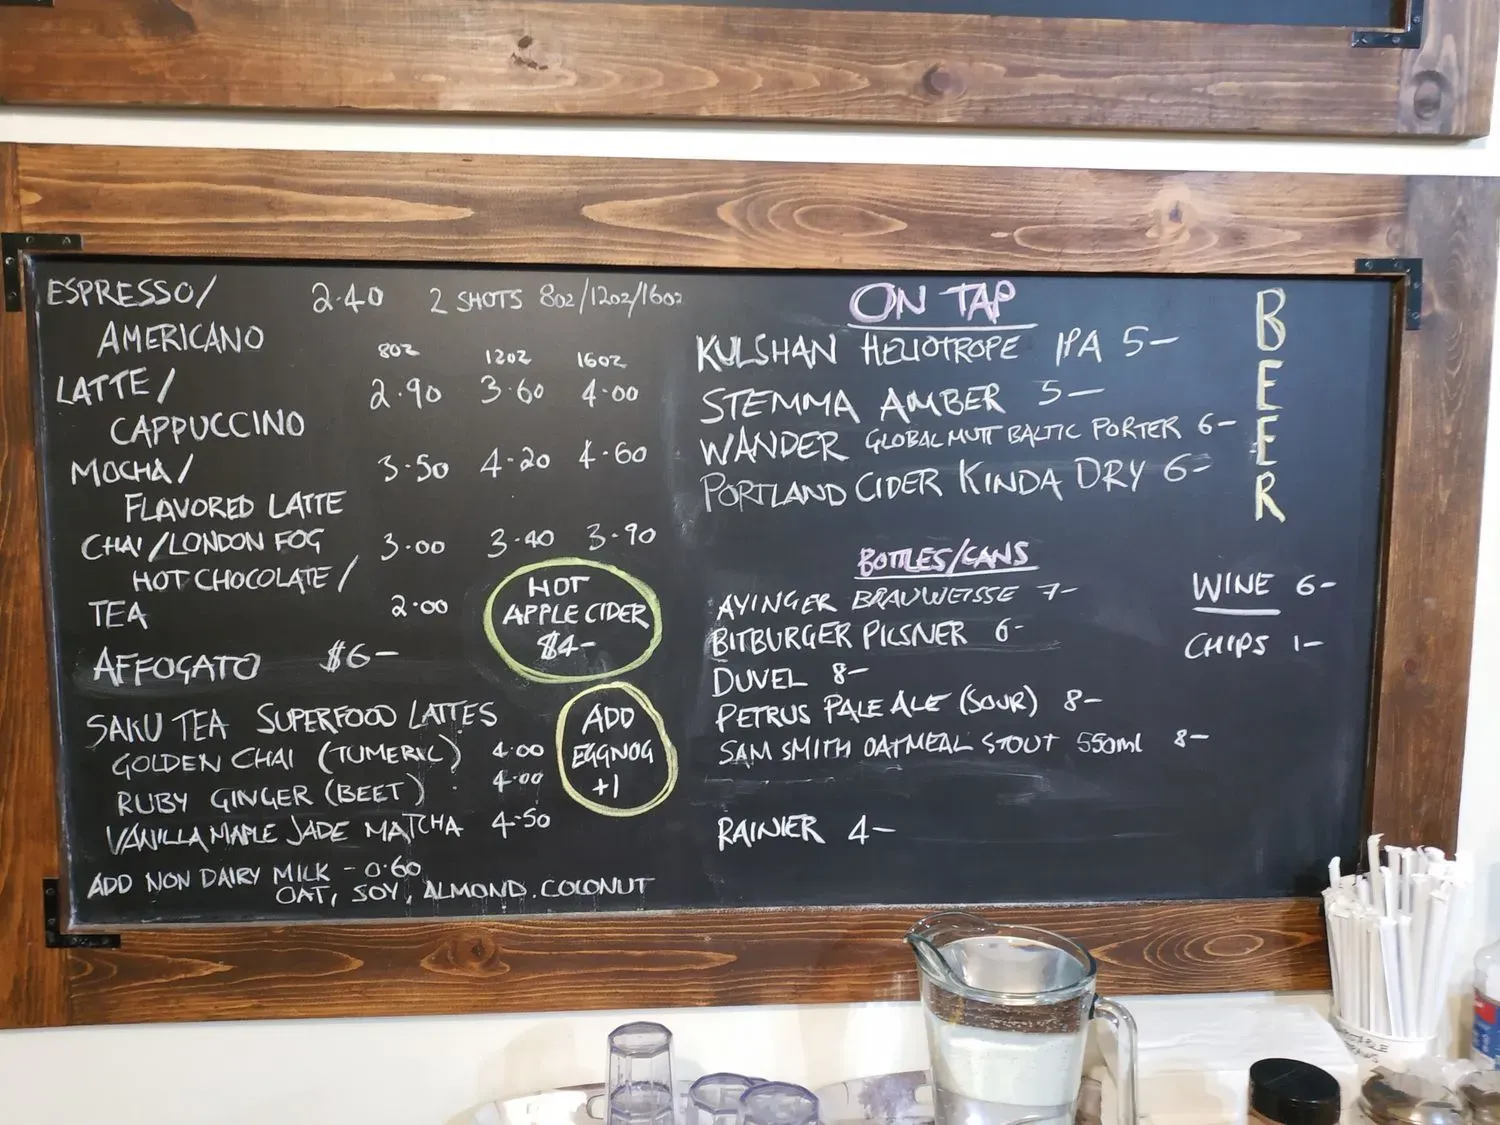 ESPRESSO/ 2.40 2 SHOTS 8oz/12oz/16oz
AMERICANO
8oz 12oz 16oz
LATTE/ 2.90 3.60 4.00
CAPPUCCINO
MOCHA/ 3.50 4.20 4.60
FLAVORED LATTE
CHAI/LONDON FOG 3.00 3.40 3.90
HOT CHOCOLATE/
TEA 2.00
AFFOGATO $6-
HOT
APPLE CIDER
$4-
SAKU TEA SUPERFOOD LATTES
GOLDEN CHAI (TUMERIC) 4.00
RUBY GINGER (BEET) 4.00
VANILLA MAPLE JADE MATCHA 4.50
ADD
EGGNOG
+1
ADD NON DAIRY MILK - 0.60
OAT, SOY, ALMOND. COCONUT
ON TAP
KULSHAN HELIOTROPE IPA 5-
STEMMA AMBER 5-
WANDER GLOBAL MUTT BALTIC PORTER 6-
PORTLAND CIDER KINDA DRY 6-
BEER
BOTTLES/CANS
AYINGER BRAUWEISSE 7-
BITBURGER PILSNER 6-
DUVEL 8-
PETRUS PALE ALE (SOUR) 8-
SAM SMITH OATMEAL STOUT 550ml 8-
RAINIER 4-
WINE 6-
CHIPS 1-